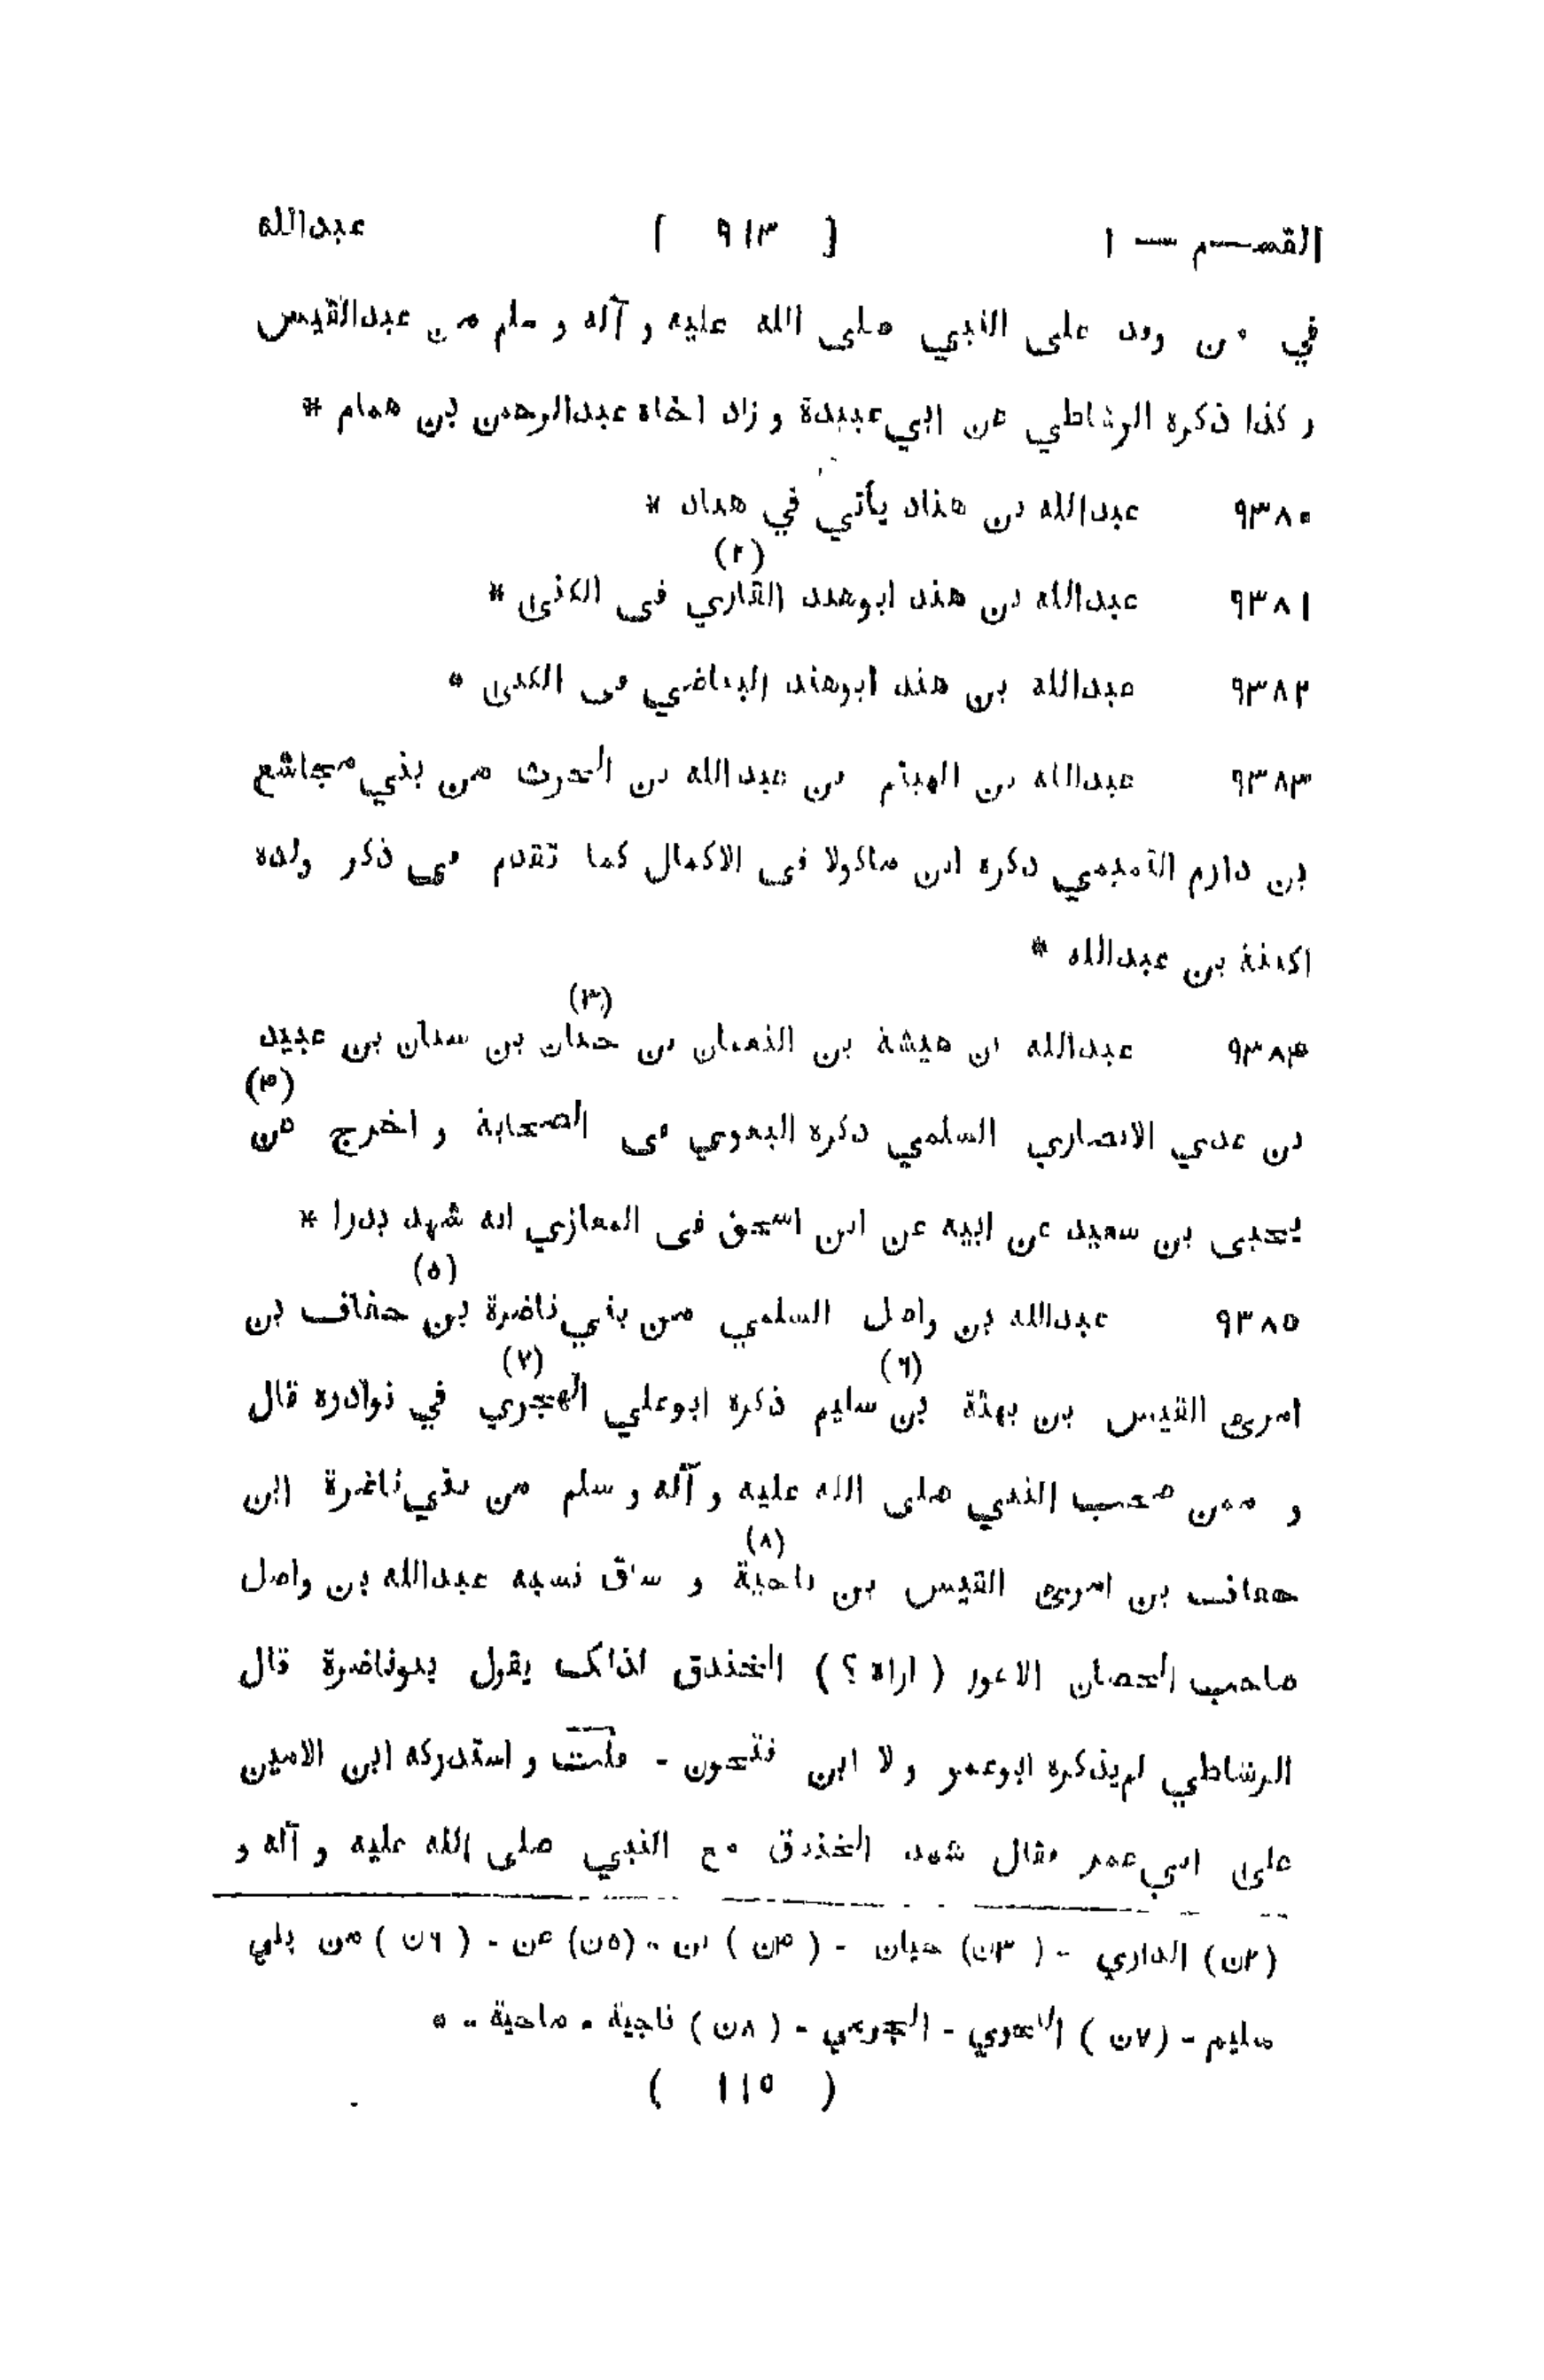 القسم — ١ [ ٩١٣ ] عبدالله
في من وفد على النبي صلى الله عليه و آله و سلم من عبدالقيس
و كذا ذكره الرشاطي عن ابي عبيدة و زاد اخاه عبدالرحمن بن همام *
٩٣٨٠ عبدالله بن هداد يأتي في هداد *
٩٣٨١ عبدالله بن هند ابوهند القاري (٢) فى الكنى *
٩٣٨٢ عبدالله بن هند ابوهند البياضي فى الكنى *
٩٣٨٣ عبدالله بن الهيثم بن عبدالله بن الحرث من بني مجاشع
بن دارم التميمي ذكره ابن ماكولا فى الاكمال كما تقدم فى ذكر ولده
اكينة بن عبدالله *
٩٣٨٤ عبدالله بن هيشة بن النعمان بن حنان (٣) بن سنان بن عبيد
بن عدي الانصاري السلمي ذكره البغوي فى الصحابة و اخرج من (٤)
يحيى بن سعيد عن ابيه عن ابن اسحق فى المغازي انه شهد بدرا *
٩٣٨٥ عبدالله بن واصل السلمي من بني ناضرة بن (٥) خفاف بن
امرئ القيس بن بهثة بن (٦) سليم ذكره ابوعلي الهجري (٧) في نوادره قال
و ممن صحب النبي صلى الله عليه و آله و سلم من بني ناضرة ابن
خفاف بن امرئ القيس بن ناحية (٨) و ساق نسبه عبدالله بن واصل
صاحب الحصان الاعور ( اراه ؟ ) الخندق لذاك يقول بنوناضرة قال
الرشاطي لم يذكره ابوعمر و لا ابن فتحون - قلت و استدركه ابن الامين
على ابي عمر فقال شهد الخندق مع النبي صلى الله عليه و آله و
(٢ن) الداري - (٣ن) حبان - (٤ن) بن - (٥ن) عن - (٦ن) من بني
سليم - (٧ن) - (٨ن) ناجية - ماحية - *
( ١١٥ )